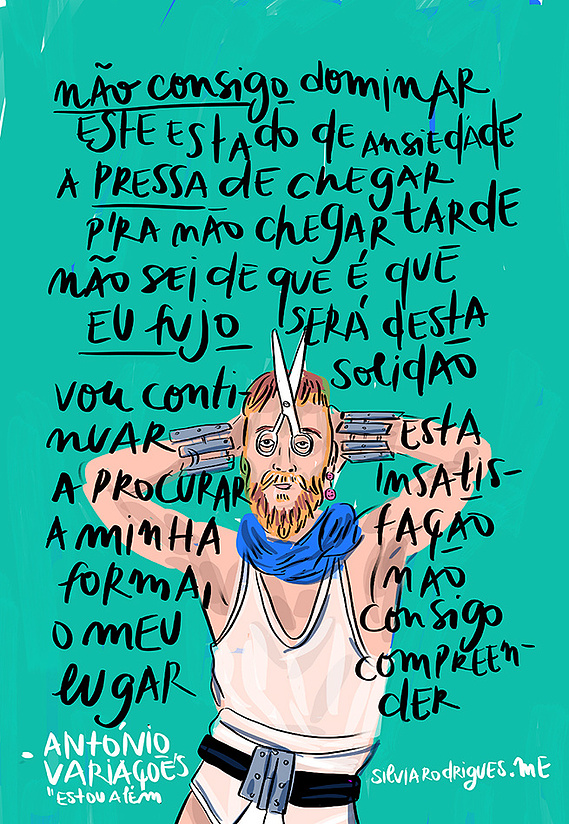 não consigo dominar
ESTE ESTAdo de ANSIEdAdE
A PRESSA dE chEgAR
p'RA NÃO chEgAR TARDE
NÃO SEI dE quE É quE
EU fujo SERÁ dESTA
solidÃO
vou conti-
NUAR
A PROCURAR
A MINHA
fORMA,
O MEU
lugAR
ESTA
INSATIS-
fAÇÃO
NÃO
CONSIgO
COMPREEN-
dER
- ANTÓNIO
VARIAÇOÉS
"ESTOU AlÉM
silviaRodrigues.ME